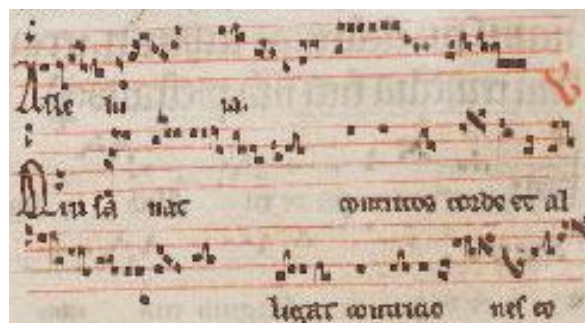 Alle lu ia.
Qui sā nat contritos corde et al
ligat contricio nes eo